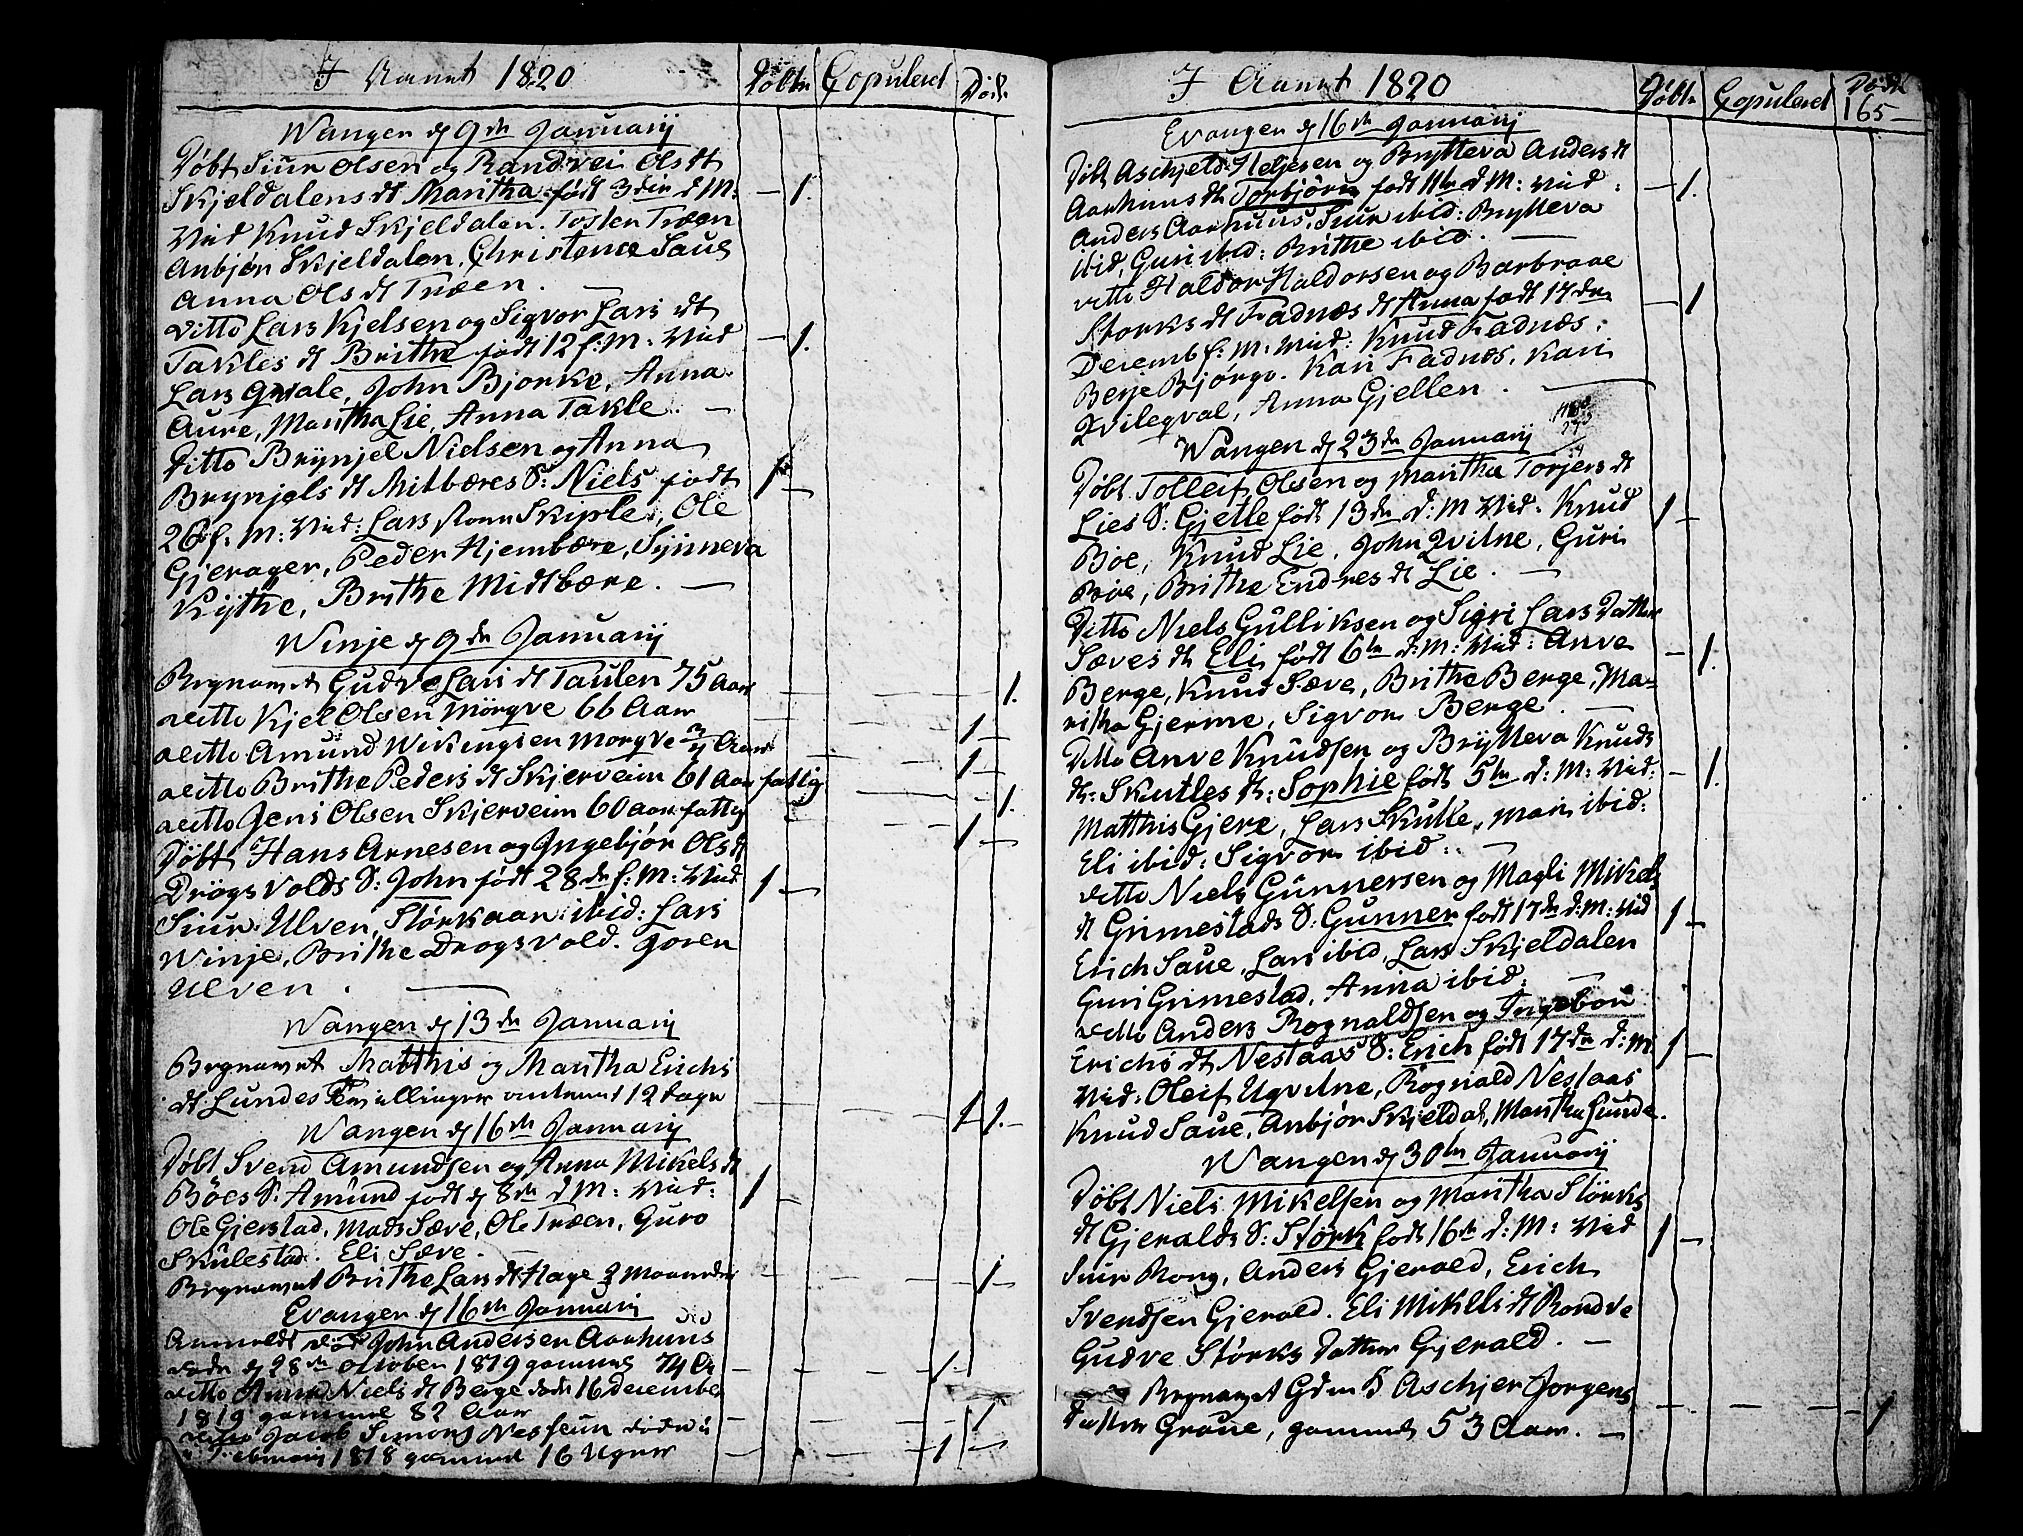 I Aaret 1820
Døbte Copuleret Døde
Wangen d 9de Januarij
Døbt Siur Olsen og Randvei Ols dt
Skjeldalens dt Maritha født 3die d M:
Vid Knud Skjeldalen. Tosten Træen
Anbjør Skjeldalen, Christense Saue
Anna Ols dt Træen.
ditto Lars Kjelsen og Sigvor Lars dt
Takles dt Brithe født 12 f: M: Vid
Lars Qvale, John Bjørke, Anna
Aure, Maritha Lie, Anna Takle.
Ditto Brynjel Nielsen og Anna
Brynjels dt Mitbæres S: Niels født
26 f: M: Vid: Lars Skiple, Ole
Gjerager, Peder Hjembære, Synneva
Kythe, Brithe Midtbære.
Winje d 9de Januarij
Begravet Gudve Lars dt Taulen 75 Aar
ditto Kjel Olsen Mørgve 66 Aar
ditto Amund Wikingsen Mørgve 3/4 Aar
ditto Brithe Peders dt Skjerveim 61 Aar fattig
ditto Jens Olsen Skjerveim 60 aar fattig
Døbt Hans Arnesen og Ingebjør Ols dt
Drøgsvolds S: John født 28de f: M: Vid
Siur Ulven, Størkaar ibid: Lars
Winje, Brithe Drøgsvold. Joren
Ulven.
Wangen d 13de Januarij
Begravet Matthis og Maritha Erichs
dt Lundes Tvillinger 12 Dage
Wangen d 16de Januarij
Døbt Svend Amundsen og Anna Mikels dt
Böes S: Amund født d 8de d M: Vid:
Ole Gjerstad, Mads Sæve, Ole Træen, Guro
Skulestad. Eli Sæve.
Begravet Brithe Lars dt Hage 2 Maaneder
Evangen d 16de Januarij
Anmeldt død John Andersen Aarhuus
døde d 28de October 1819 gammel 74 Ar
ditto Anna Niels dt Berge døde 16 December
1819 gammel 82 Aar
ditto Jacob Simons Nesheim døde i
Februarij 1818 gammel 16 Uger
I Aaret 1820
Døbte Copuleret Døde
165
Evangen d 16de Januarij
Døbt Aschjeld Heljesen og Brytteva Anders dt
Aarhuus dt Torbjør født 11te d M: Vid:
Anders Aarhuus, Siur ibid: Brytteva
ibid, Guri ibid: Brithe ibid.
ditto Haldor Haldorsen og Barbraae
Størks dt Fadnæs dt Anna født 17de
Decemb f: M: Vid: Knud Fadnæs,
Berje Bjørgo. Kari Fadnæs. Kari
Qvileqval, Anna Gjellen.
Wangen d 23de Januarij
Døbt Tolleif Olsen og Maritha Torjers dt
Lies S: Gjetle født 13de d: M Vid: Knud
Bøe, Knud Lie, John Qvilne, Guri
Bøe, Brithe Endres dt Lie.
Ditto Niels Gulliksen og Sigri Lars Datter
Sæves dt Eli født 6te d: M: Vid: Anve
Berge, Knud Sæve, Brithe Berge, Ma=
ritha Gjerme, Sigvor Berge.
Ditto Anve Knudsen og Brytteva Knuds
dt: Skutles dt: Sophie født 5te d: M: Vid:
Matthis Gjere, Lars Skutle, Mari ibid:
Eli ibid: Sigvor ibid:
ditto Niels Gunnersen og Magli Mikels
dt Grimestads S: Gunner født 17de d: M: Vid
Erich Saue, Lars ibid, Lars Skjeldalen
Guri Grimestad, Anna ibid:
ditto Anders Rognaldsen og Ingebor
Erichs dt Nestaas S: Erich født 17de d: M
Vid: Oleif Ugvilne, Rognald Nestaas
Knud Saue, Anbjør Skjeldal, Maritha Lunde.
Wangen d 30te Januarij
Døbt Niels Mikelsen og Maritha Størks
dt Gjeralds S: Størk født 16de d: M: Vid
Siur Rong, Anders Gjerald, Erich
Svendsen Gjerald. Eli Mikels dt Rondve
Gudve Størks Datter Gjerald.
Begravet Aschjer Jorgens
Datter Graue, gammel 53 Aar.